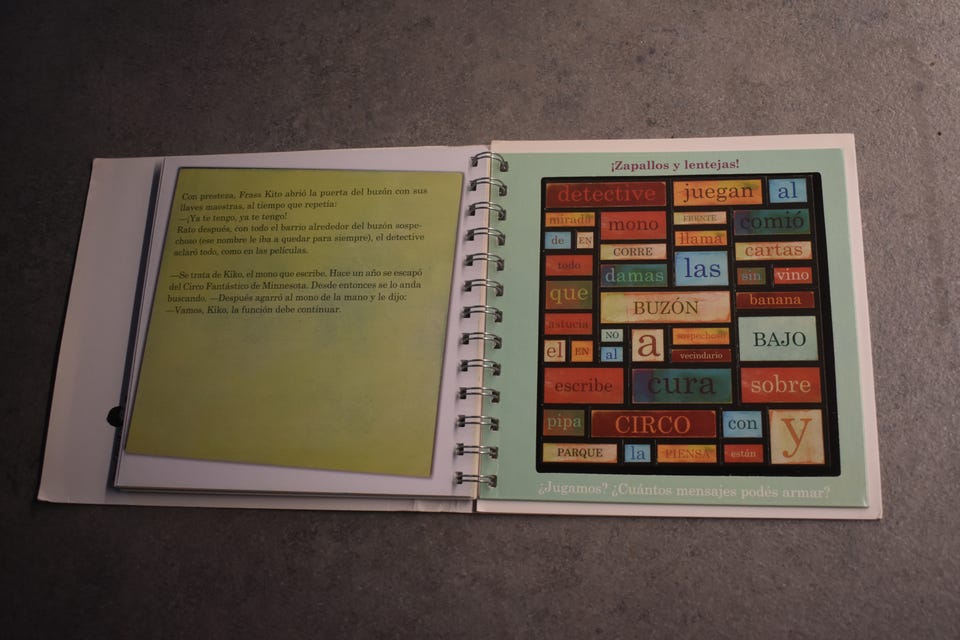 Con presteza, Frass Kito abrió la puerta del buzón con sus
llaves maestras, al tiempo que repetía:
—¡Ya te tengo, ya te tengo!
Rato después, con todo el barrio alrededor del buzón sospe-
choso (ese nombre le iba a quedar para siempre), el detective
aclaró todo, como en las películas.
—Se trata de Kiko, el mono que escribe. Hace un año se escapó
del Circo Fantástico de Minnesota. Desde entonces se lo anda
buscando. —Después agarró al mono de la mano y le dijo:
—Vamos, Kiko, la función debe continuar.
¡Zapallos y lentejas!
detective juegan al
mirada mono FRENTE comió
de EN llama
CORRE cartas
todo damas las sin vino
que BUZÓN banana
astucia NO a sospechoso BAJO
el EN al vecindario
escribe cura sobre
pipa CIRCO con y
PARQUE la PIENSA están
¿Jugamos? ¿Cuántos mensajes podés armar?